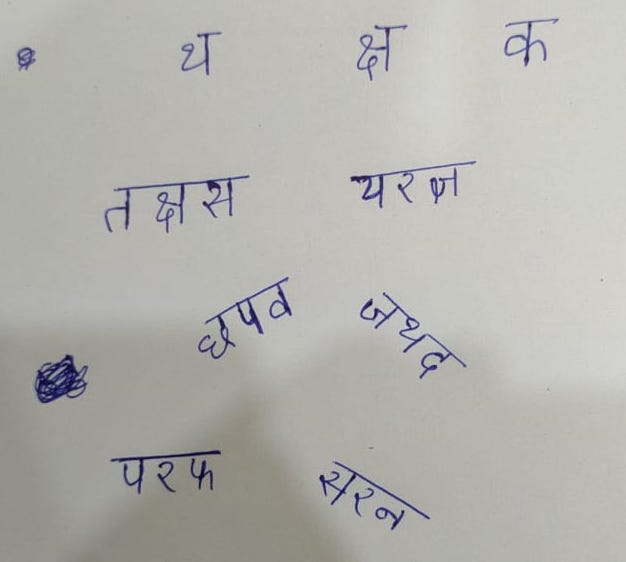 थ क्ष क
तक्षस यरज
छपव जथद
परफ सरन